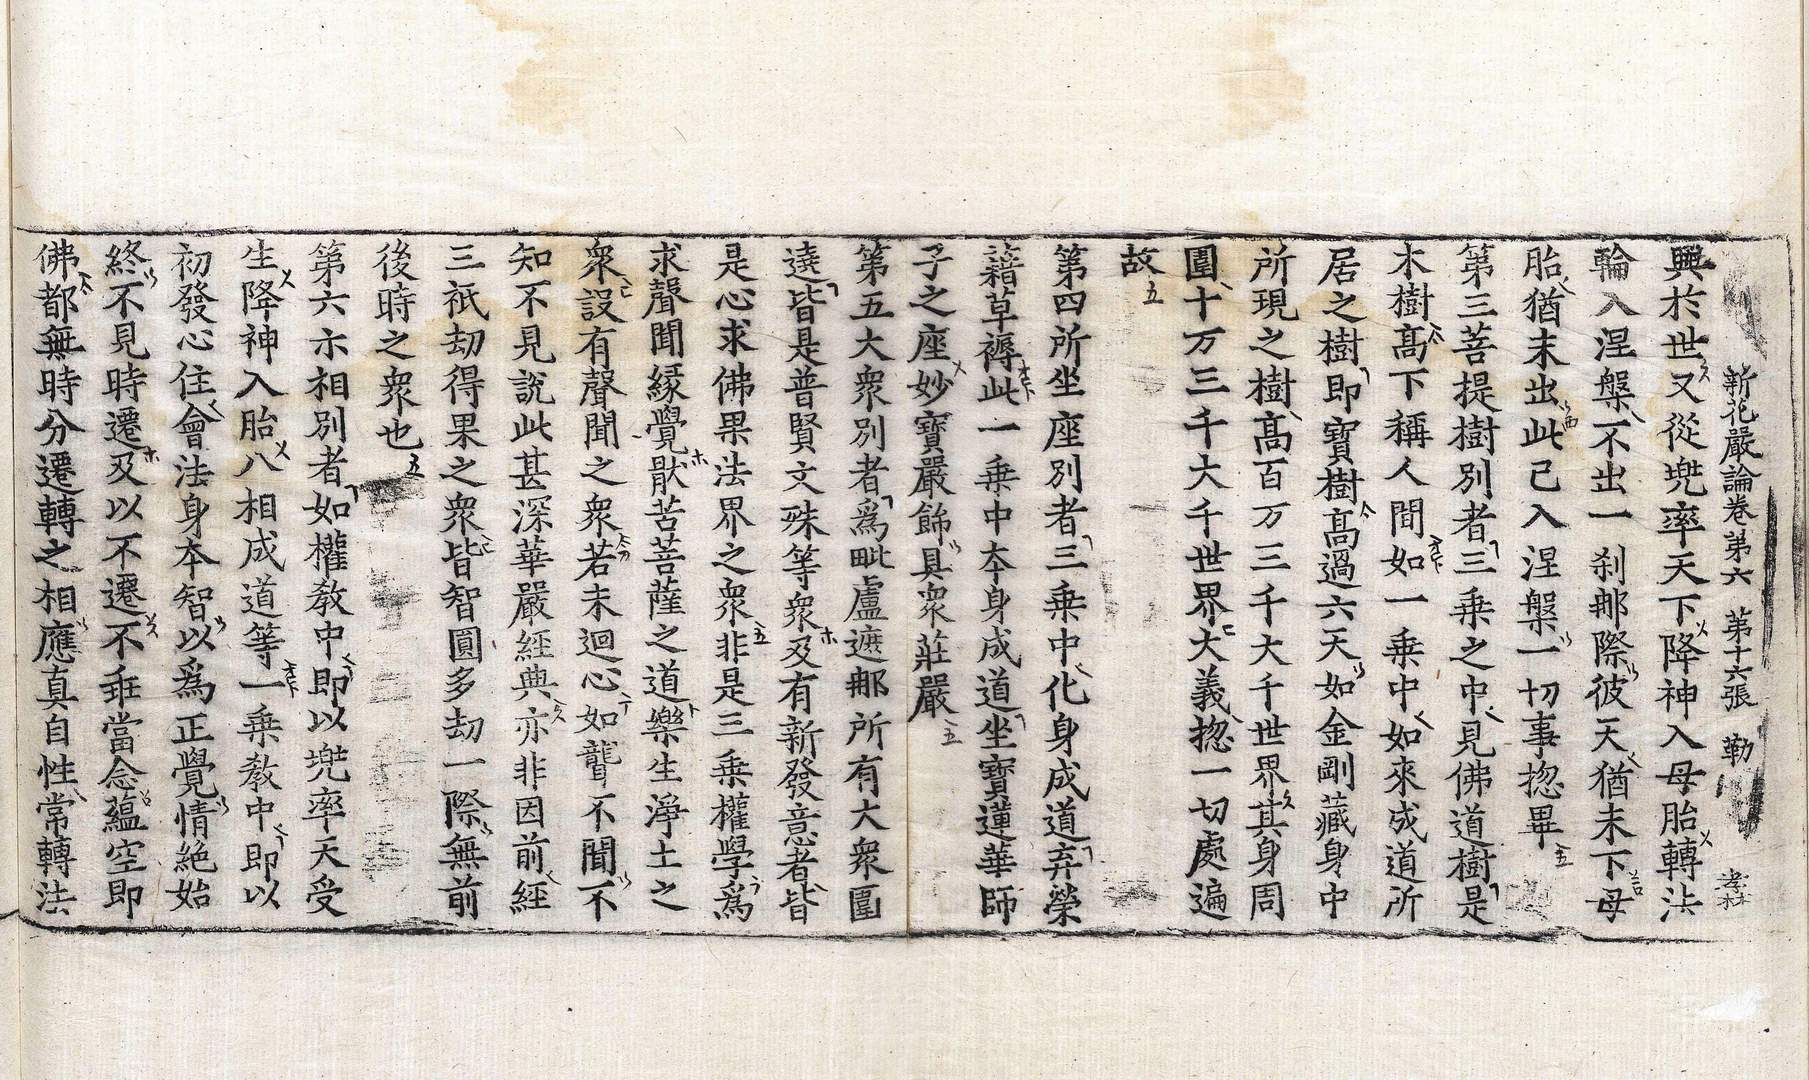 新花嚴論卷第六 第十六張 勒 孝林
興於世又從兜率天下降神入母胎轉法
輪入涅槃不出一刹那際彼天猶未下母
胎猶未出此已入涅槃一切事揔畢
第三菩提樹別者三乗之中見佛道樹是
木樹髙下稱人間如一乗中如來成道所
居之樹即寶樹髙過六天如金剛藏身中
所現之樹髙百万三千大千世界其身周
圍十万三千大千世界大義揔一切處遍
故
第四所坐座別者三乗中化身成道弃榮
藉草褥此一乗中本身成道坐寶蓮華師
子之座妙寶嚴飾具衆莊嚴
第五大衆別者爲毗盧遮那所有大衆圍
遶皆是普賢文殊等衆及有新發意者皆
是心求佛果法界之衆非是三乗權學爲
求聲聞緣覺猒苦菩薩之道樂生淨土之
衆設有聲聞之衆若未迴心如聾不聞不
知不見說此甚深華嚴經典亦非因前經
三祇劫得果之衆皆智圓多劫一際無前
後時之衆也
第六示相別者如權教中即以兜率天受
生降神入胎八相成道等一乗教中即以
初發心住會法身本智以爲正覺情絶始
終不見時遷及以不遷不乖當念蘊空即
佛都無時分遷轉之相應真自性常轉法